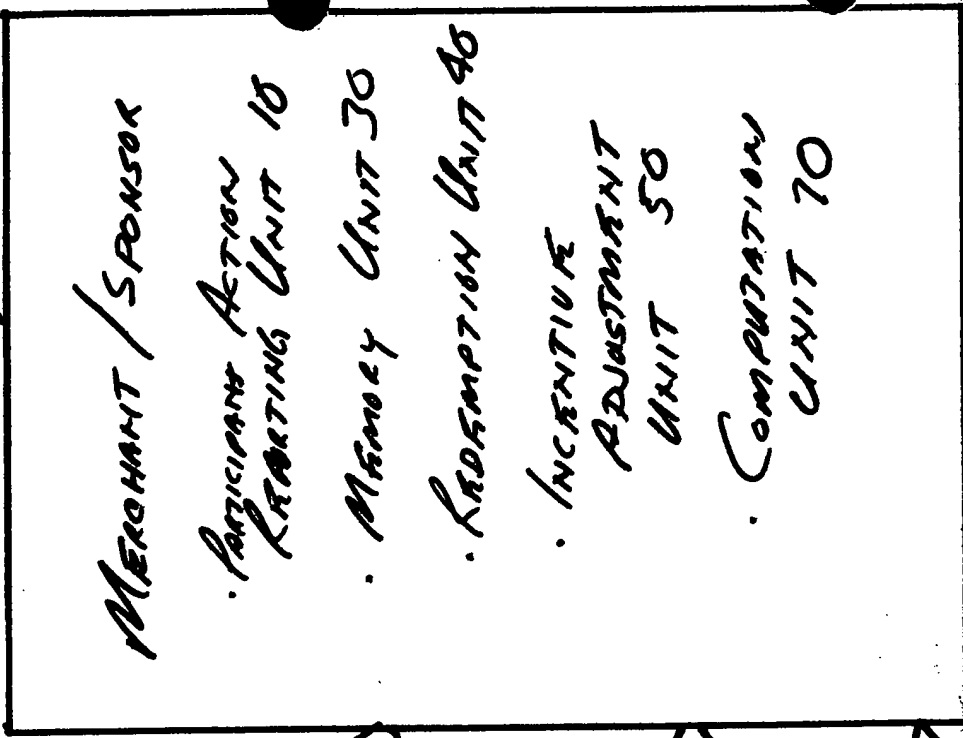 MERCHANT / SPONSOR
· PARTICIPANT ACTION
REPORTING UNIT 10
· MEMORY UNIT 30
· REDEMPTION UNIT 40
· INCENTIVE
ADJUSTMENT
UNIT 50
· COMPUTATION
UNIT 70